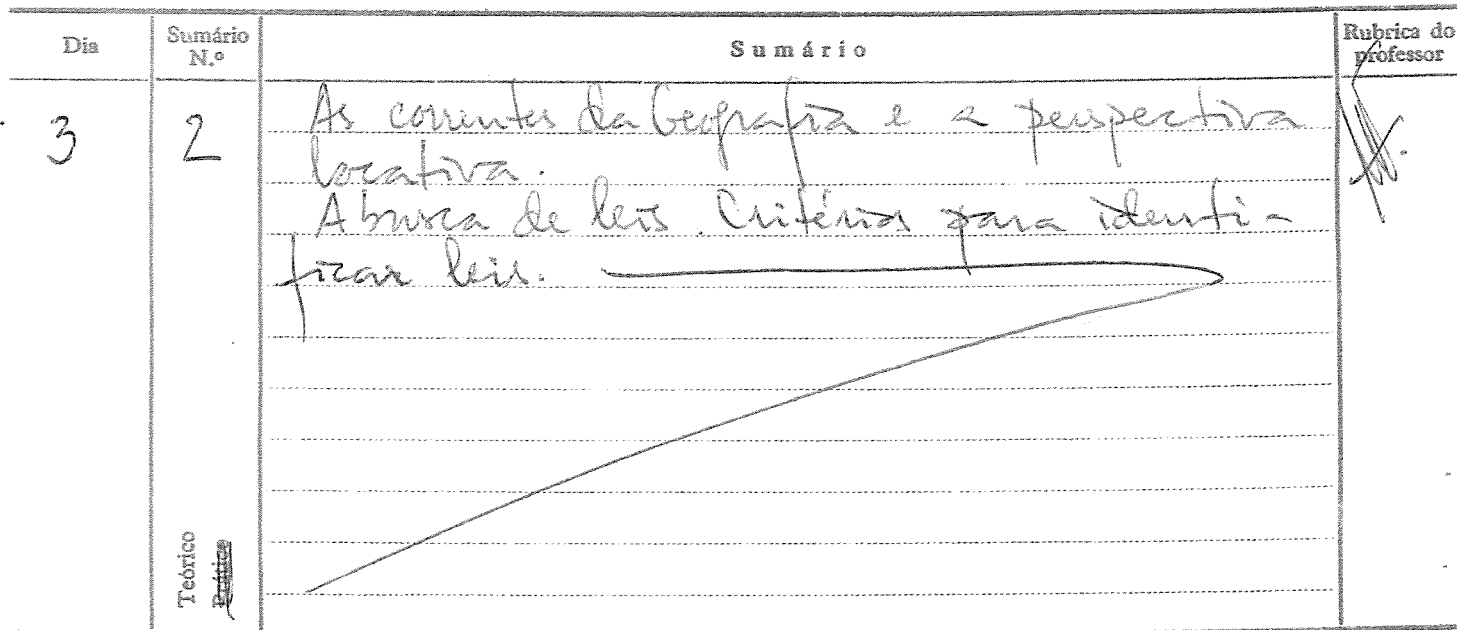 Dia
Sumário N.º
Sumário
Rubrica do professor
3
2
As correntes da Geografia e a perspectiva
locativa.
A busca de leis. Critérios para identi-
ficar leis.
Teórico
Prático